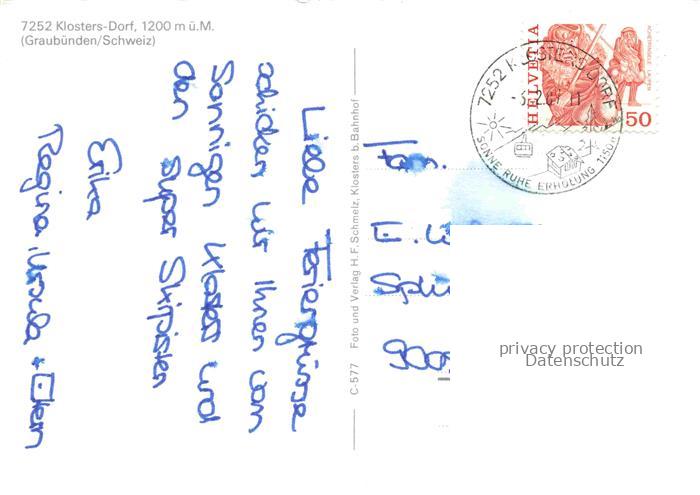 7252 Klosters-Dorf, 1200 m ü.M.
(Graubünden/Schweiz)
Liebe Feriengrüsse
schicken wir Ihnen vom
Sonnigen Klosters und
den super Skipisten
Erika
Regina, Ursula + Eltern
C-577 Foto und Verlag H.F. Schmelz, Klosters b. Bahnhof
HELVETIA
ACHETRINGELE LAUPEN
50
7252 KLOSTERS DORF
SONNE RUHE ERHOLUNG
E. W
900
privacy protection
Datenschutz